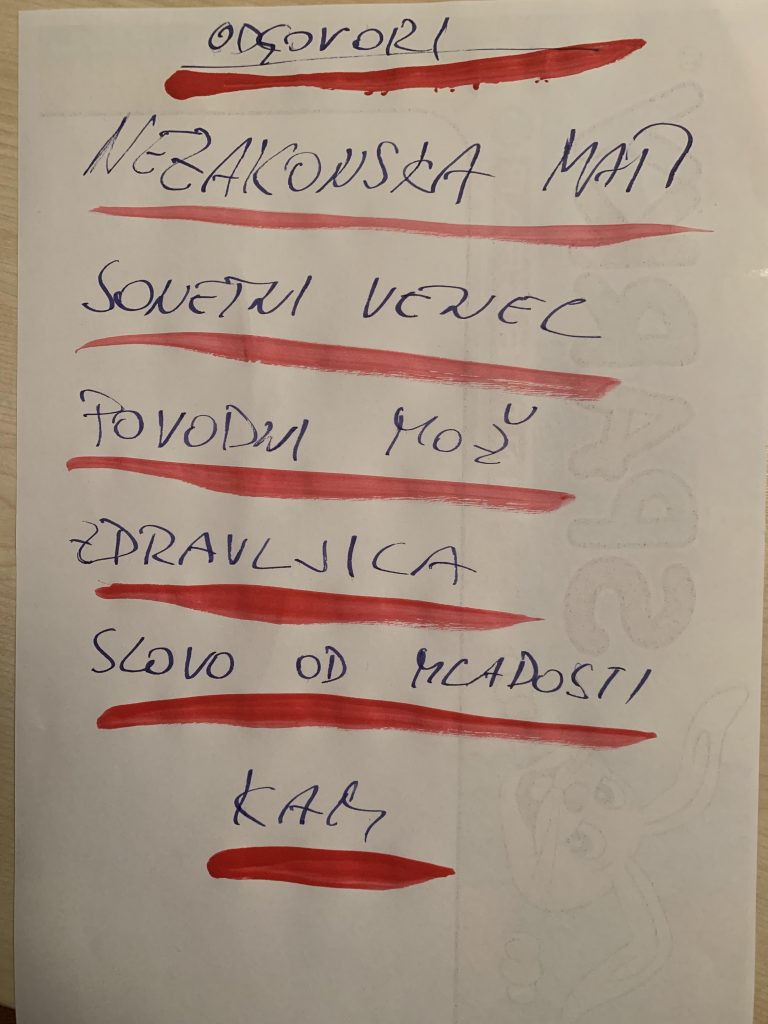 ODGOVORI
NEZAKONSKA MATI
SONETNI VENEC
POVODNI MOŽ
ZDRAVLJICA
SLOVO OD MLADOSTI
KAM